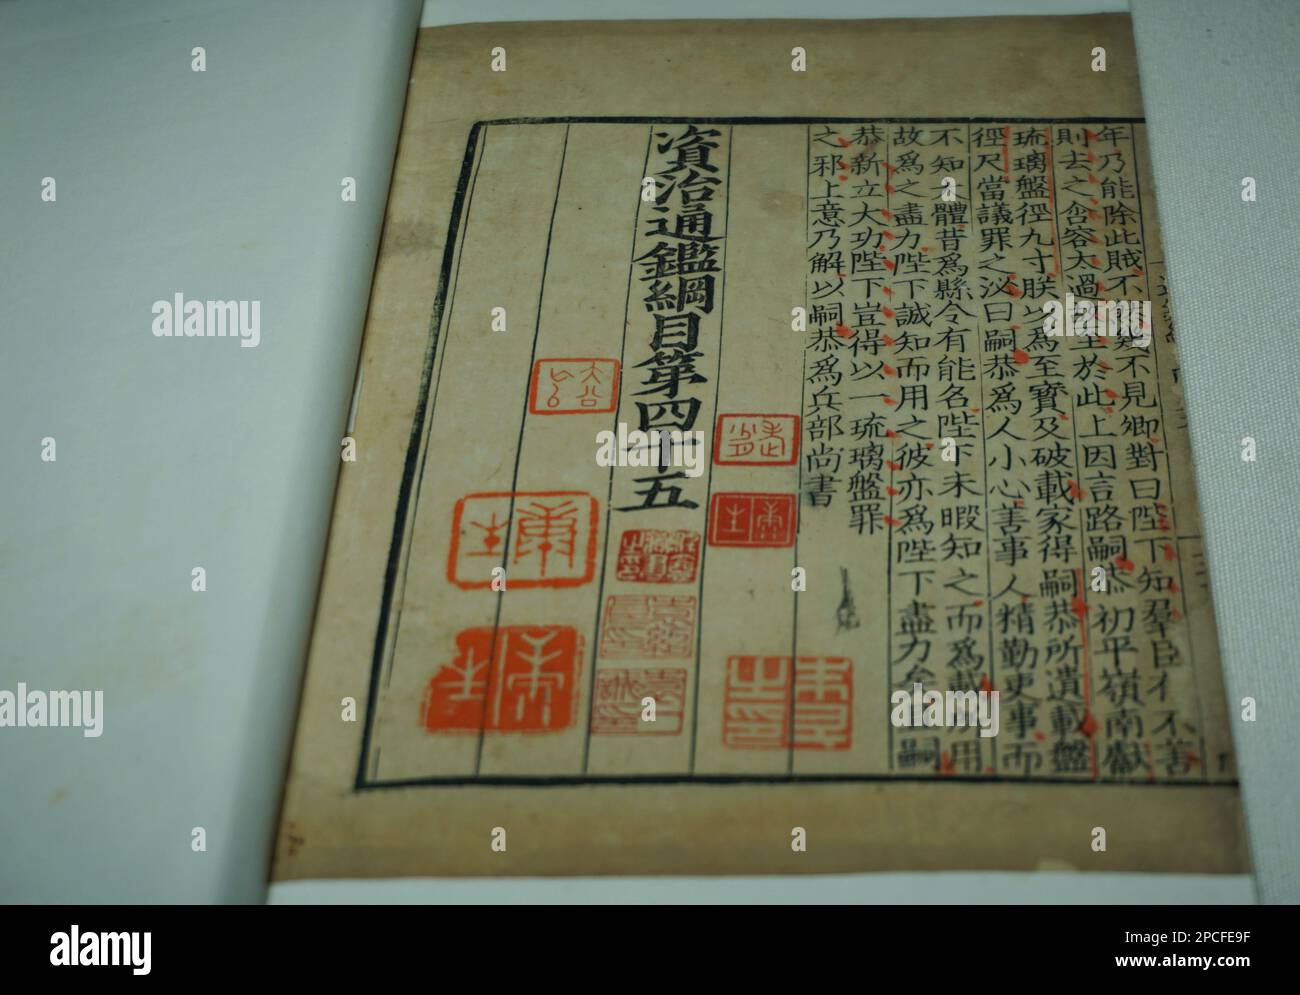 年乃能除此賊不然幾不見卿對曰陛下知羣臣之不善
則去之含容太過故至於此上因言路嗣恭初平嶺南獻
琉璃盤徑九寸朕以為至寶及破載家得嗣恭所遺載盤
徑尺當議罪之泌曰嗣恭為人小心善事人精勤吏事而
不知大體昔為縣令有能名陛下未暇知之而為載所用
故為之盡力陛下誠知而用之彼亦為陛下盡力矣且嗣
恭新立大功陛下豈得以一琉璃盤罪
之邪上意乃解以嗣恭為兵部尚書
資治通鑑綱目第四十五
alamy
Image ID: 2PCFE9F
www.alamy.com